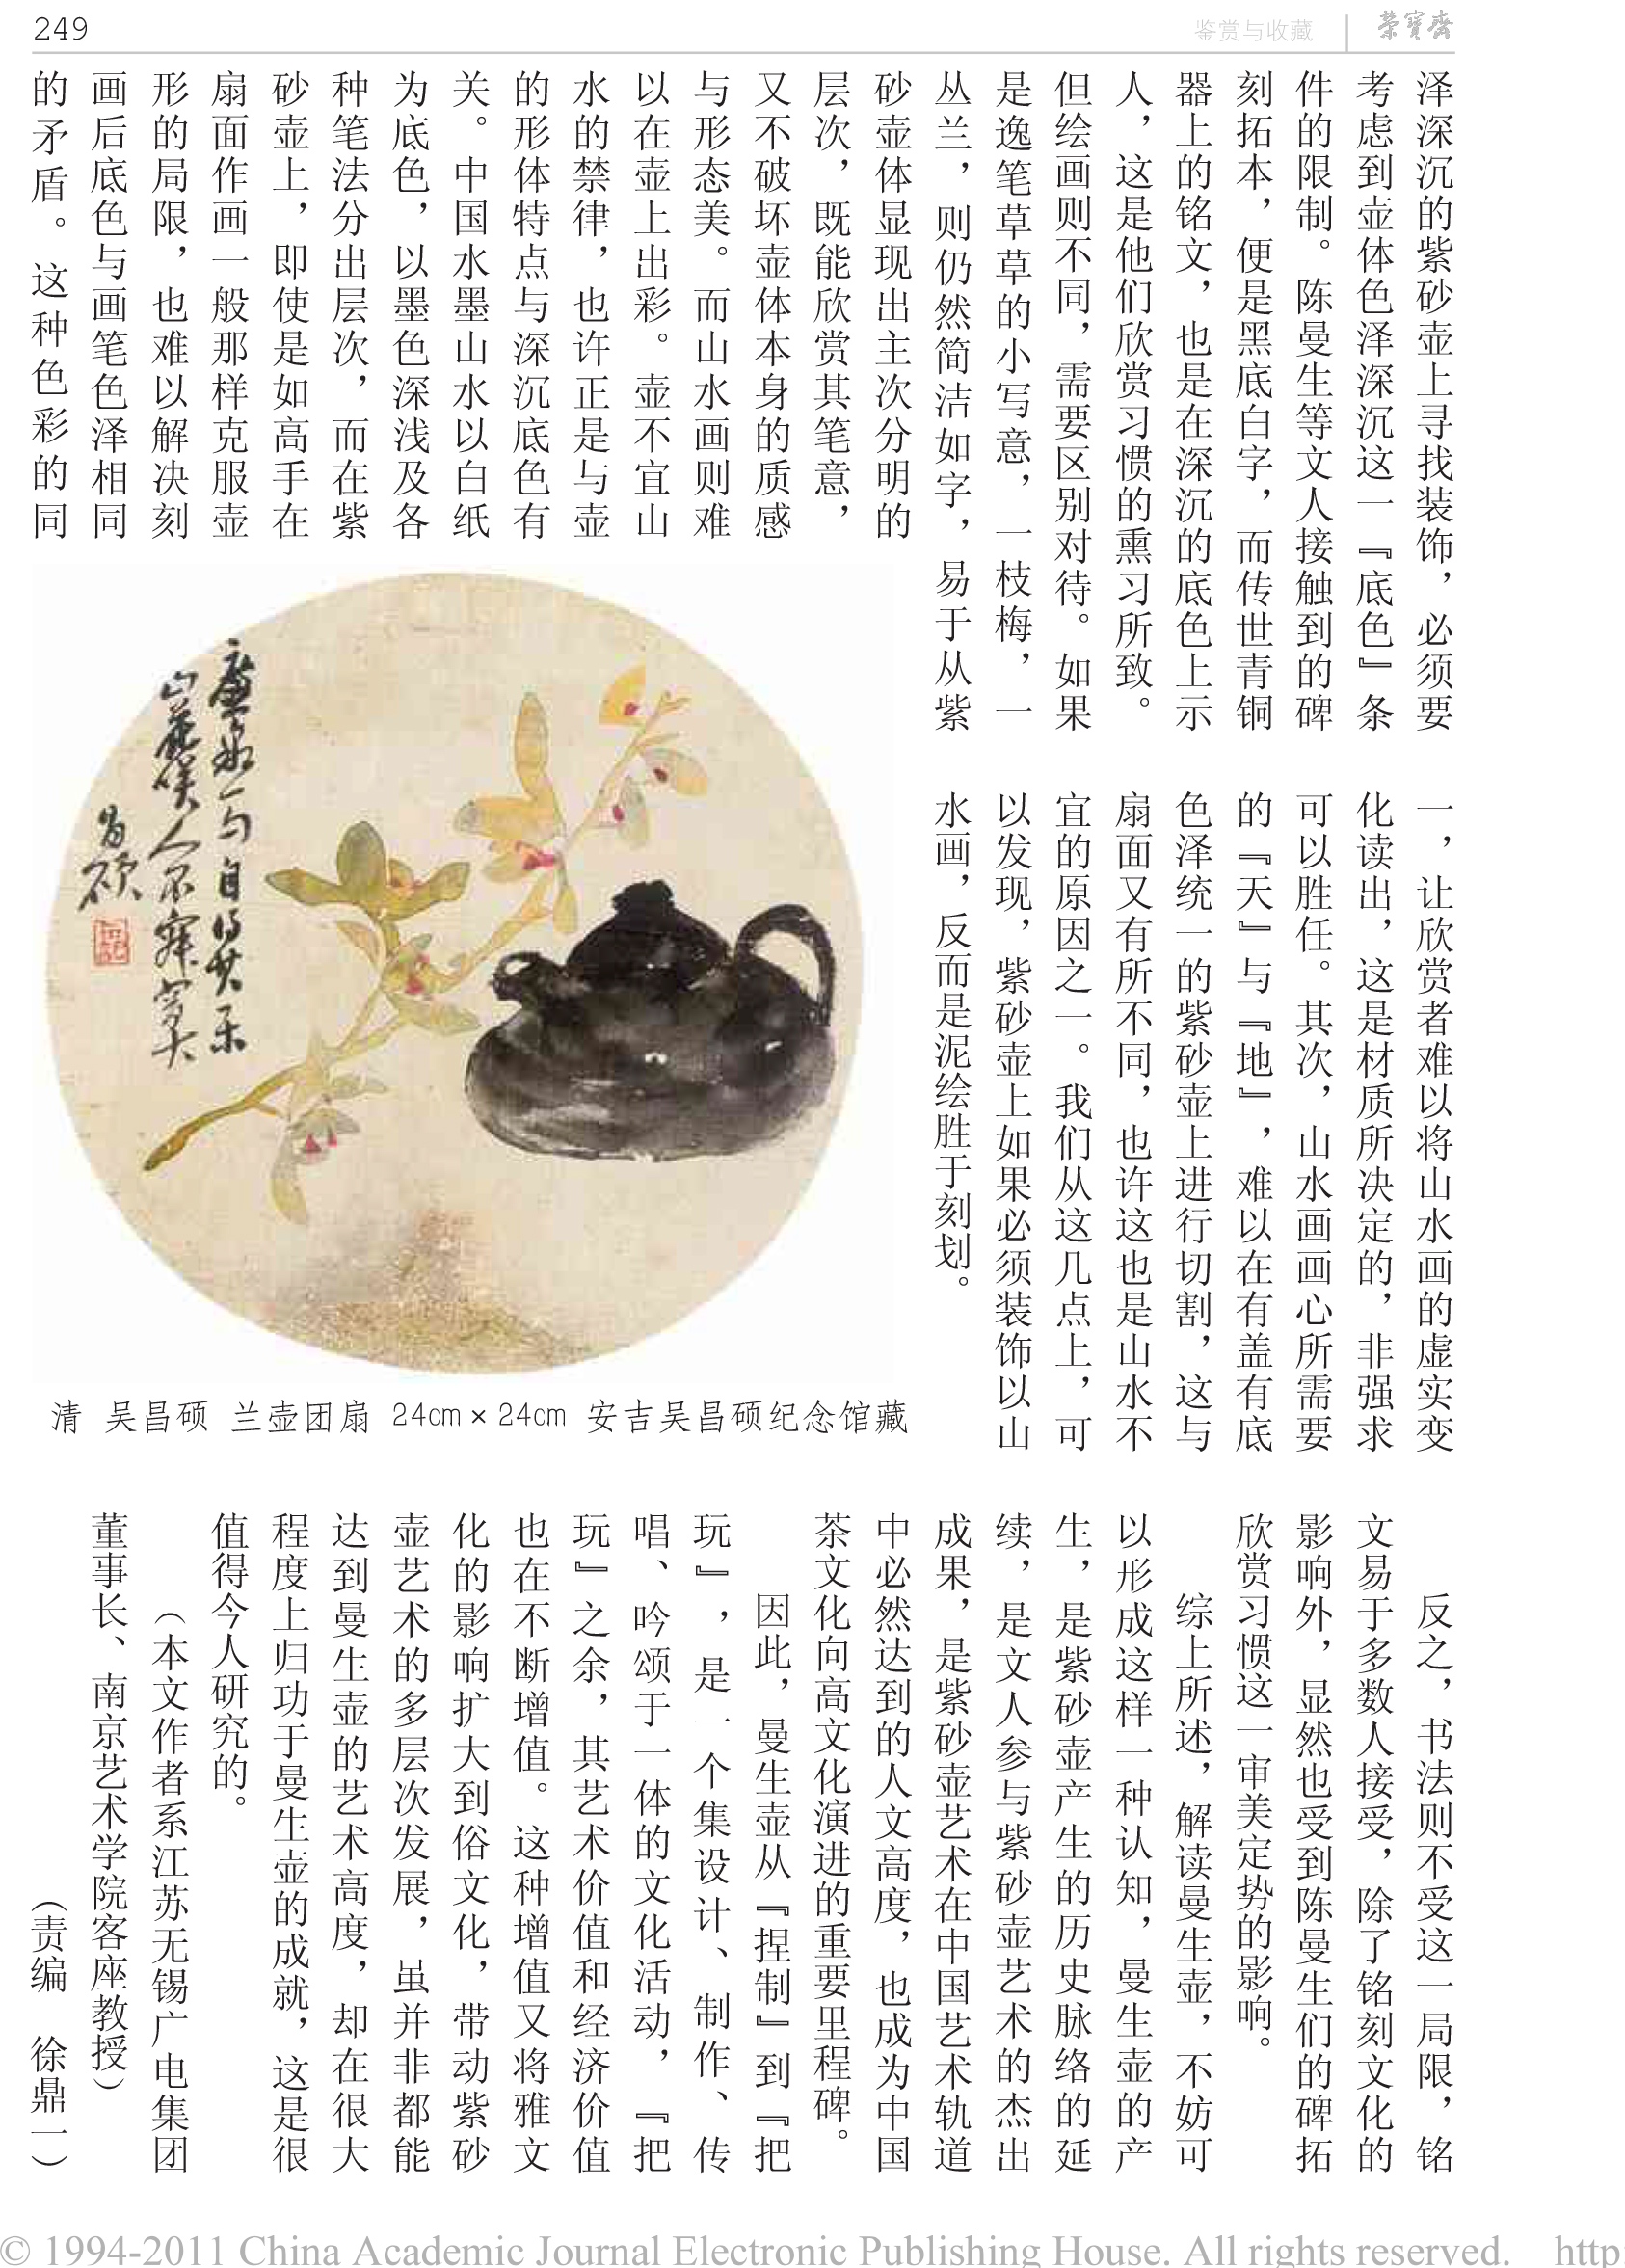 249
鉴赏与收藏
荣宝斋
泽深沉的紫砂壶上寻找装饰，必须要
考虑到壶体色泽深沉这一『底色』条
件的限制。陈曼生等文人接触到的碑
刻拓本，便是黑底白字，而传世青铜
器上的铭文，也是在深沉的底色上示
人，这是他们欣赏习惯的熏习所致。
但绘画则不同，需要区别对待。如果
是逸笔草草的小写意，一枝梅，一
丛兰，则仍然简洁如字，易于从紫
砂壶体显现出主次分明的
层次，既能欣赏其笔意，
又不破坏壶体本身的质感
与形态美。而山水画则难
以在壶上出彩。壶不宜山
水的禁律，也许正是与壶
的形体特点与深沉底色有
关。中国水墨山水以白纸
为底色，以墨色深浅及各
种笔法分出层次，而在紫
砂壶上，即使是如高手在
扇面作画一般那样克服壶
形的局限，也难以解决刻
画后底色与画笔色泽相同
的矛盾。这种色彩的同
一，让欣赏者难以将山水画的虚实变
化读出，这是材质所决定的，非强求
可以胜任。其次，山水画画心所需要
的『天』与『地』，难以在有盖有底
色泽统一的紫砂壶上进行切割，这与
扇面又有所不同，也许这也是山水不
宜的原因之一。我们从这几点上，可
以发现，紫砂壶上如果必须装饰以山
水画，反而是泥绘胜于刻划。
廉泉一勺自得其乐
山花笑人不寂寞大
昌硕
清 吴昌硕 兰壶团扇 24cm×24cm 安吉吴昌硕纪念馆藏
反之，书法则不受这一局限，铭
文易于多数人接受，除了铭刻文化的
影响外，显然也受到陈曼生们的碑拓
欣赏习惯这一审美定势的影响。
综上所述，解读曼生壶，不妨可
以形成这样一种认知，曼生壶的产
生，是紫砂壶产生的历史脉络的延
续，是文人参与紫砂壶艺术的杰出
成果，是紫砂壶艺术在中国艺术轨道
中必然达到的人文高度，也成为中国
茶文化向高文化演进的重要里程碑。
因此，曼生壶从『捏制』到『把
玩』，是一个集设计、制作、传
唱、吟颂于一体的文化活动，『把
玩』之余，其艺术价值和经济价值
也在不断增值。这种增值又将雅文
化的影响扩大到俗文化，带动紫砂
壶艺术的多层次发展，虽并非都能
达到曼生壶的艺术高度，却在很大
程度上归功于曼生壶的成就，这是很
值得今人研究的。
（本文作者系江苏无锡广电集团
董事长、南京艺术学院客座教授）
（责编 徐鼎一）
© 1994-2011 China Academic Journal Electronic Publishing House. All rights reserved. http: